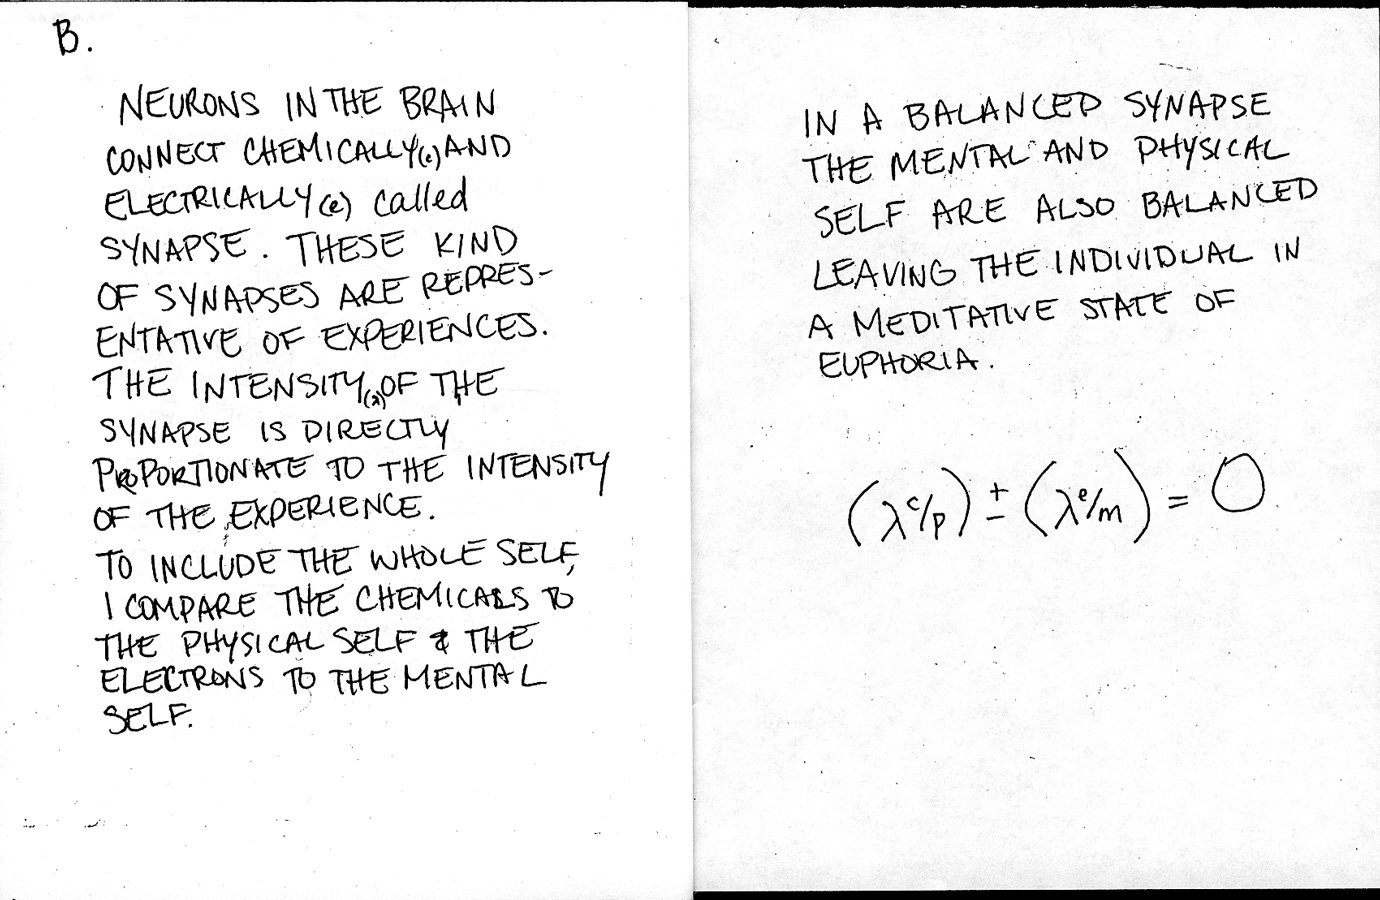 B.
NEURONS IN THE BRAIN
CONNECT CHEMICALLY(c) AND
ELECTRICALLY (e) called
SYNAPSE. THESE KIND
OF SYNAPSES ARE REPRES-
ENTATIVE OF EXPERIENCES.
THE INTENSITY(λ) OF THE
SYNAPSE IS DIRECTLY
PROPORTIONATE TO THE INTENSITY
OF THE EXPERIENCE.
TO INCLUDE THE WHOLE SELF,
I COMPARE THE CHEMICALS TO
THE PHYSICAL SELF & THE
ELECTRONS TO THE MENTAL
SELF.
IN A BALANCED SYNAPSE
THE MENTAL AND PHYSICAL
SELF ARE ALSO BALANCED
LEAVING THE INDIVIDUAL IN
A MEDITATIVE STATE OF
EUPHORIA.
(λ c/p) ± (λ e/m) = 0